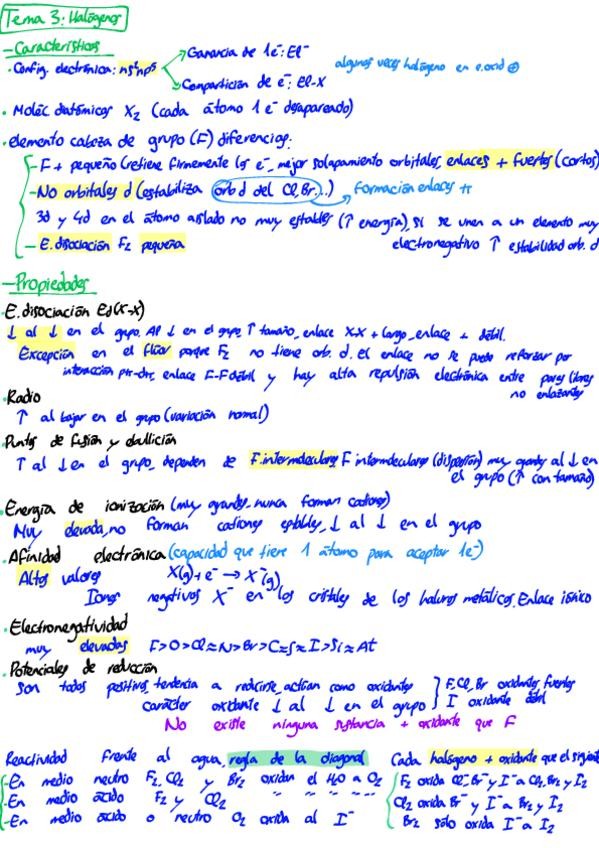 Tema 3: Halógenos
- Características
· Config. electrónica: ns²np⁵
Ganancia de 1e⁻: El⁻
Compartición de e⁻: El-X
algunas veces halógeno en e.oxid ⊕
· Moléc diatómicas X₂ (cada átomo 1 e⁻ desapareado)
· elemento cabeza de grupo (F) diferencias:
- F + pequeño (retiene firmemente los e⁻, mejor solapamiento orbitales, enlaces + fuertes (cortos)
- No orbitales d (estabiliza orb d del Cl, Br...) Formación enlaces π
3d y 4d en el átomo aislado no muy estables (↑ energía), si se unen a un elemento muy
electronegativo ↑ estabilidad orb. d
- E. disociación F₂ pequeña
- Propiedades
· E. disociación Ed(X-X)
↓ al ↓ en el grupo. Al ↓ en el grupo ↑ tamaño, enlace X-X + largo, enlace + débil.
Excepción en el flúor porque F₂ no tiene orb. d. el enlace no se puede reforzar por
interacción pπ-dπ, enlace F-F débil y hay alta repulsión electrónica entre pares libres
no enlazantes
· Radio
↑ al bajar en el grupo (variación normal)
· Puntos de fusión y ebullición
↑ al ↓ en el grupo, dependen de F. intermoleculares F intermoleculares (dispersión) muy grandes al ↓ en
el grupo (↑ con tamaño)
· Energía de ionización (muy grandes, nunca forman cationes)
Muy elevada, no forman cationes estables, ↓ al ↓ en el grupo
· Afinidad electrónica (capacidad que tiene 1 átomo para aceptar 1e⁻)
Altos valores X(g) + e⁻ → X⁻(g)
Iones negativos X⁻ en los cristales de los haluros metálicos. Enlace iónico
· Electronegatividad
muy elevadas F>O>Cl≈N>Br>C≈S≈I>Si≈At
· Potenciales de reducción
Son todos positivos, tendencia a reducirse, actúan como oxidantes
carácter oxidante ↓ al ↓ en el grupo
F, Cl, Br oxidantes fuertes
I oxidante débil
No existe ninguna sustancia + oxidante que F
Reactividad frente al agua, regla de la diagonal
- En medio neutro F₂, Cl₂ y Br₂ oxidan el H₂O a O₂
- En medio ácido F₂ y Cl₂ " " " "
- En medio ácido o neutro O₂ oxida al I⁻
Cada halógeno + oxidante que el siguiente
F₂ oxida Cl⁻, Br⁻ y I⁻ a Cl₂, Br₂ y I₂
Cl₂ oxida Br⁻ y I⁻ a Br₂ y I₂
Br₂ sólo oxida I⁻ a I₂